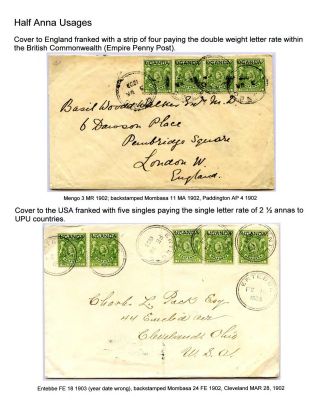 Half Anna Usages
Cover to England franked with a strip of four paying the double weight letter rate within
the British Commonwealth (Empire Penny Post).
UGANDA UGANDA UGANDA UGANDA
6 Dawson Place
Pembridge Square
London W.
England.
Mengo 3 MR 1902; backstamped Mombasa 11 MA 1902, Paddington AP 4 1902
Cover to the USA franked with five singles paying the single letter rate of 2 ½ annas to
UPU countries.
UGANDA UGANDA UGANDA UGANDA UGANDA
ENTEBBE
Charles L. Pack Esq
44 Euclid Ave
Cleveland Ohio
U.S.A
Entebbe FE 18 1903 (year date wrong), backstamped Mombasa 24 FE 1902, Cleveland MAR 28, 1902